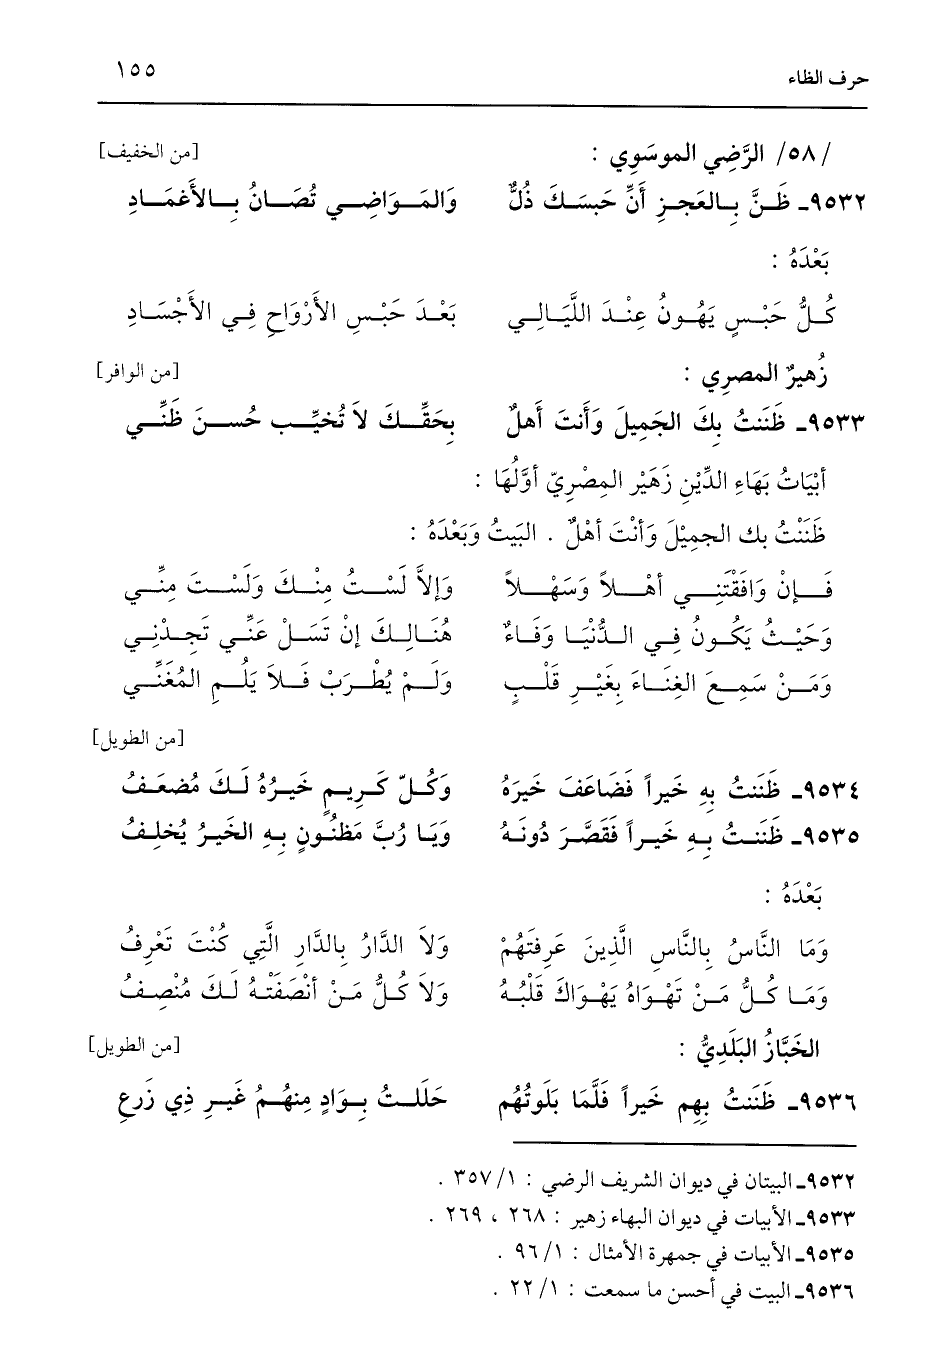 حرف الظاء ١٥٥
/٥٨/ الرَّضِي الموسَوِي : [من الخفيف]
٩٥٣٢ـ ظَنَّ بِالعَجزِ أَنَّ حَبسَكَ ذُلٌّ وَالمَوَاضِي تُصَانُ بِالأَغمَادِ
بَعْدَهُ :
كُلُّ حَبْسٍ يَهُونُ عِنْدَ اللَّيَالِي بَعْدَ حَبْسِ الأَرْوَاحِ فِي الأَجْسَادِ
زُهيرٌ المصرِي : [من الوافر]
٩٥٣٣ـ ظَنَنتُ بِكَ الجَمِيلَ وَأَنتَ أَهلٌ بِحَقِّكَ لاَ تُخيِّب حُسنَ ظَنِّي
أبْيَاتُ بَهَاءِ الدِّيْنِ زَهَيْر المِصْرِيّ أوَّلُهَا :
ظَنَنْتُ بك الجمِيْلَ وَأنْتَ أهْلٌ . البَيتُ وَبَعْدَهُ :
فَإنْ وَافَقْتَنِي أهْلاً وَسَهْلاً وَإلاَّ لَسْتُ مِنْكَ وَلَسْتَ مِنِّي
وَحَيْثُ يَكُونُ فِي الدُّنْيَا وَفَاءٌ هُنَالِكَ إنْ تَسَلْ عَنِّي تَجِدْنِي
وَمَنْ سَمِعَ الغِنَاءَ بِغَيْرِ قَلْبٍ وَلَمْ يُطْرَبْ فَلاَ يَلُمِ المُغَنِّي
[من الطويل]
٩٥٣٤ـ ظَنَنتُ بِهِ خَيراً فَضَاعَفَ خَيرَهُ وَكُلّ كَرِيمٍ خَيرُهُ لَكَ مُضعَفُ
٩٥٣٥ـ ظَنَنتُ بِهِ خَيراً فَقَصَّرَ دُونَهُ وَيَا رُبَّ مَظنُونٍ بِهِ الخَيرُ يُخلِفُ
بَعْدَهُ :
وَمَا النَّاسُ بِالنَّاسِ الَّذِينَ عَرِفتَهُمْ وَلاَ الدَّارُ بِالدَّارِ الَّتِي كُنْتَ تَعْرِفُ
وَمَا كُلُّ مَنْ تَهْوَاهُ يَهْوَاكَ قَلْبُهُ وَلاَ كُلُّ مَنْ أنْصَفْتهُ لَكَ مُنْصِفُ
الخَبَّازُ البَلَدِيُّ : [من الطويل]
٩٥٣٦ـ ظَنَنتُ بِهِم خَيراً فَلَمَّا بَلَوتُهُم حَلَلتُ بِوَادٍ مِنهُمُ غَيرِ ذِي زَرعِ
٩٥٣٢ـ البيتان في ديوان الشريف الرضي : ٣٥٧/١ .
٩٥٣٣ـ الأبيات في ديوان البهاء زهير : ٢٦٨ ، ٢٦٩ .
٩٥٣٥ـ الأبيات في جمهرة الأمثال : ٩٦/١ .
٩٥٣٦ـ البيت في أحسن ما سمعت : ٢٢/١ .